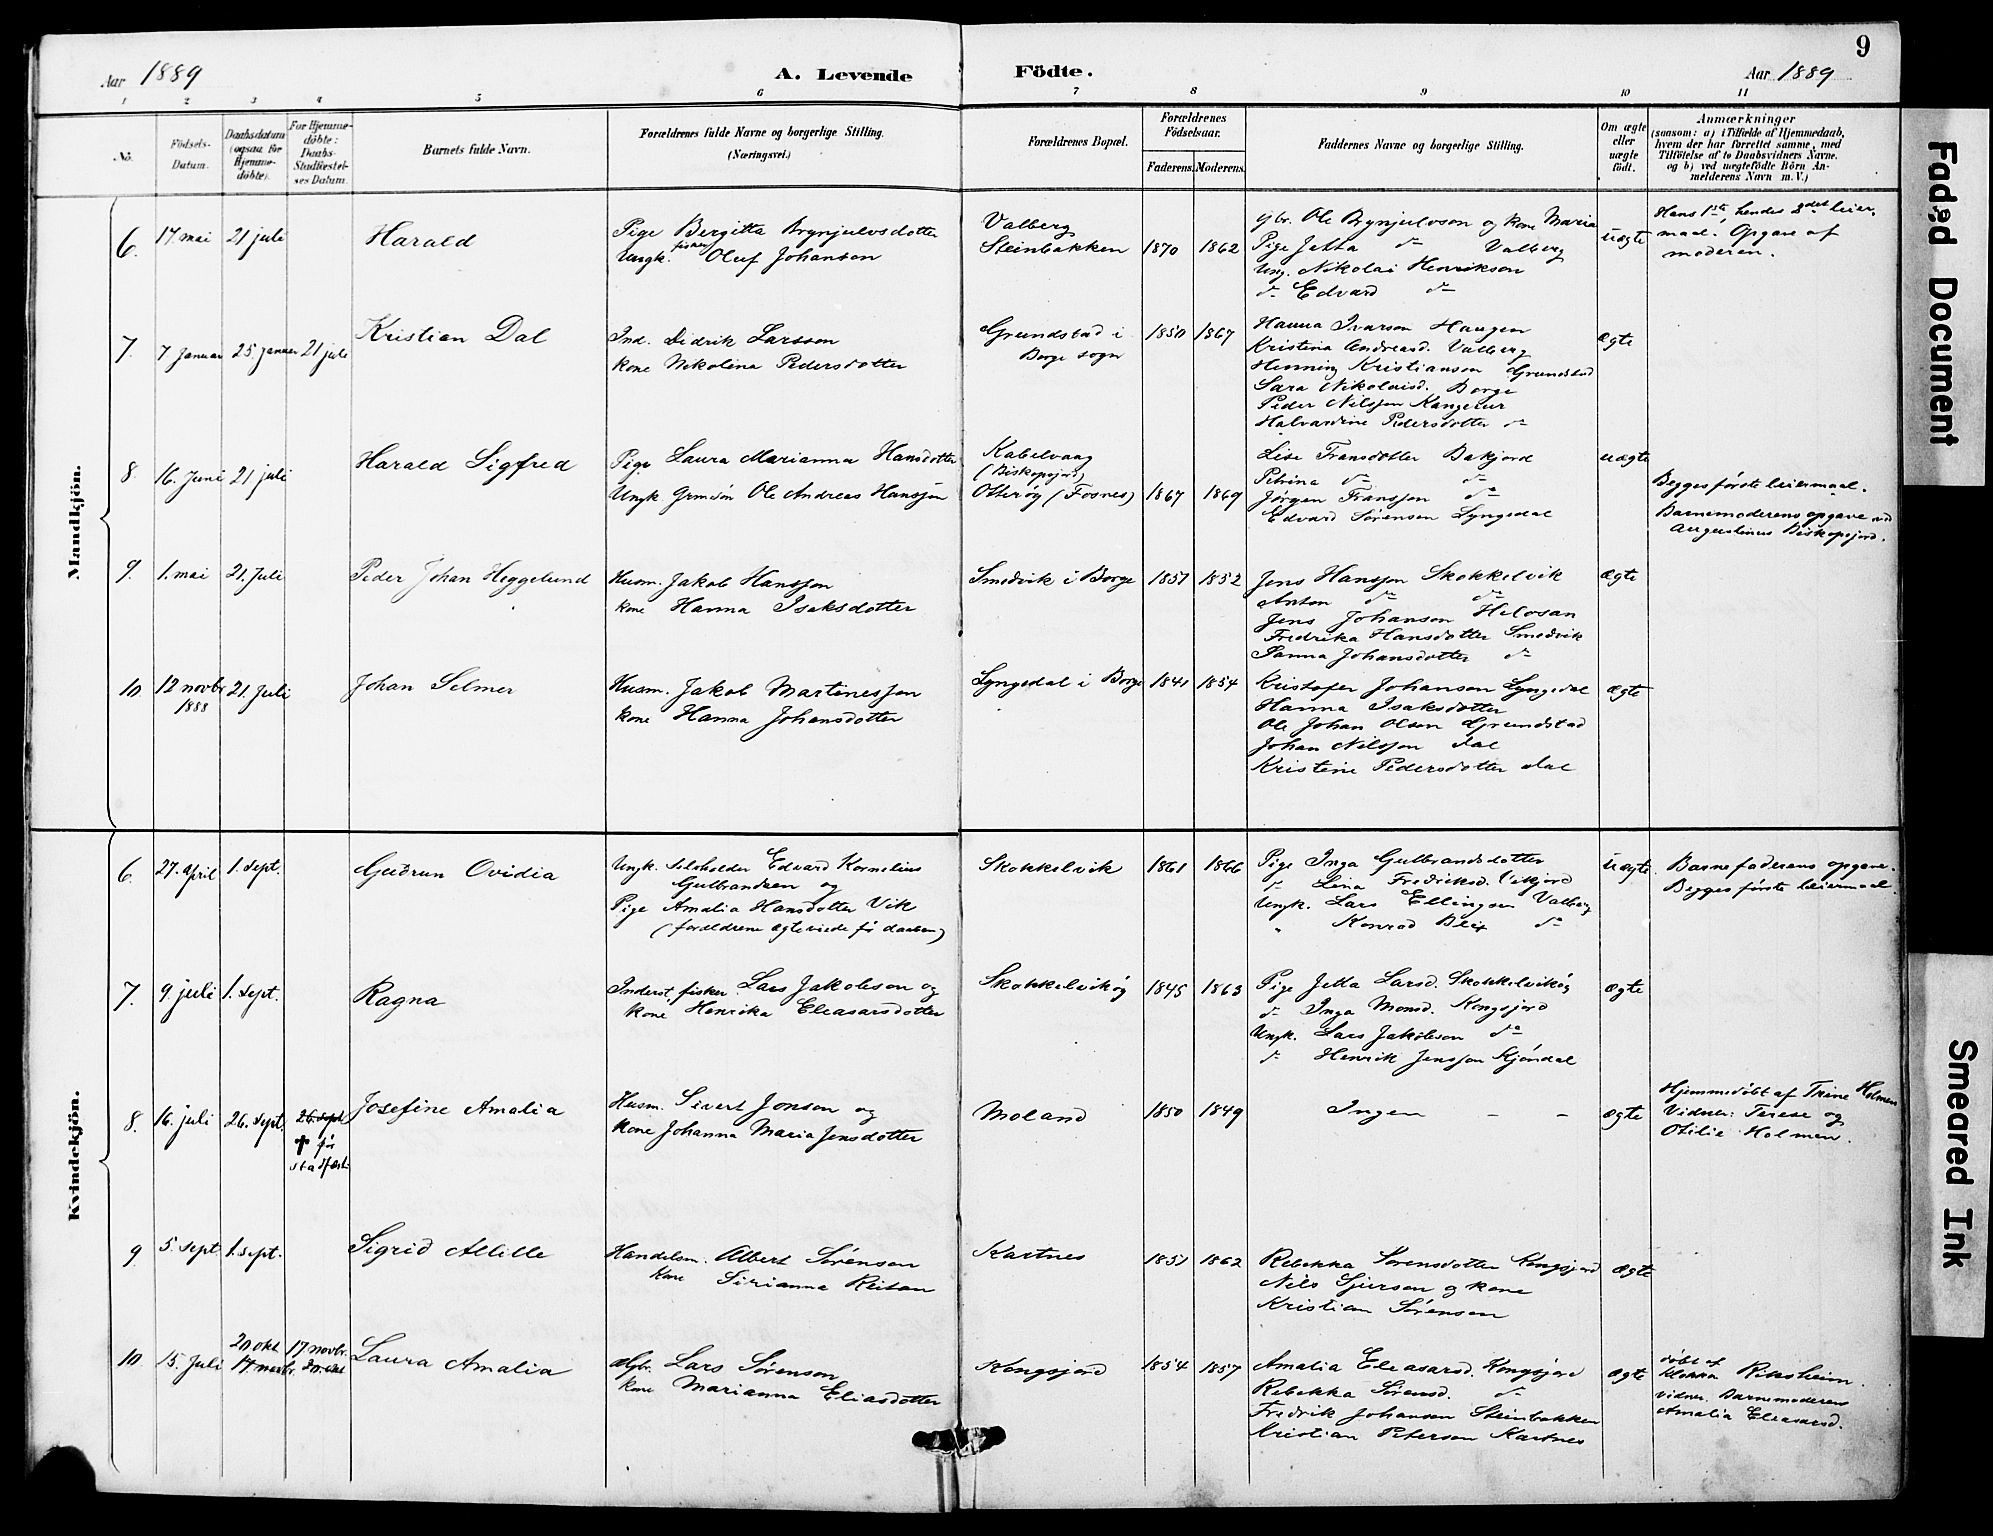 Aar 1889
A. Levende
Födte.
Aar 1889
9
1 2 3 4 5 6 7 8 9 10 11
No.
Födsels-
Datum.
Daabsdatum
(ogsaa for
Hjemme-
döbte).
For Hjemme-
döbte:
Daabs-
Stadfæstel-
ses Datum.
Barnets fulde Navn.
Forældrenes fulde Navne og borgerlige Stilling.
(Næringsvei.)
Forældrenes Bopæl.
Forældrenes
Födselsaar.
Faderens. Moderens.
Faddernes Navne og borgerlige Stilling.
Om ægte
eller
uægte
födt.
Anmærkninger
(saasom: a) i Tilfælde af Hjemmedaab,
hvem der har forrettet samme, med
Tilföielse af to Daabsvidners Navne,
og b) ved uægtefödte Börn An-
melderens Navn m. V.)
Mandkjön.
6. 17 mai 21 juli
Harald
Pige Bergitta Brynjulvsdotter
Ungk. fisker Oluf Johanson
Valberg
Steinbakken 1870 1862
gbr. Ole Brynjulvson og kone Maria
Pige Jetta do Valberg
Ung. Nikolai Henrikson
do Edvard do
uægte
Hans 1ste, hendes 2det leier-
maal. Opgave af
moderen.
7. 7 Januar 25. januar 21 juli
Kristian Dal
Ind. Didrik Larsson
kone Nikolina Pedersdotter
Grundstad i
Borge sogn
1850 1867
Hanna Ivarson Haugen
Kristina Andreasd. Valberg
Henning Kristianson Grundstad
Sara Nikolaisd. Borge
Peder Nilsson
Halvardine Pedersdotter do
ægte
8 16. Juni 21 juli
Harald Sigfred
Pige Laura Marianna Hansdotter
Ungk Ole Andreas Hansson
Kabelvaag
(Biskopsjord)
Otterøy (Fosnes) 1867 1869
Lise Fransdotter Bakjord
Petrina do do
Jørgen Fransson do
Edvard Sørensen Lyngedal
uægte
Begges første leiermaal.
Barnemoderens opgave ved
Augustinus Biskopsjord.
9. 1. mai 21. Juli
Peder Johan Heggelund
Husm. Jakob Hansson
kone Hanna Isaksdotter
Smedvik i Borge 1851 1852
Jens Hansson Skokkelvik
Anton do do
Jens Johanson Helosan
Fredrika Hansdotter Smedvik
Janna Johansdotter do
ægte
10 12 novbr 21. Juli
1888
Johan Selmer
Husm. Jakob Martinesson
kone Hanna Johansdotter
Lyngedal i Borge 1841 1854
Kristofer Johanson Lyngedal
Hanna Isaksdotter
Ole Johan Olsen Grundstad
Johan Nilsson dal
Kristine Pedersdotter dal
ægte
Kvindekjön.
6. 27. april 1. sept.
Gudrun Ovidia
Ungk. Edvard Kornelius
Gulbrandsen og
Pige Amalia Hansdotter Vik
(forældrene ægteviede før daaben)
Skokkelvik 1861 1866
Pige Inga Gulbrandsdotter
do Lina Fredriksd. Vikjord
Ungk. Lars Ellingsen Valberg
" Konrad Blix do
uægte
Barnefaderens opgave.
Begges første leiermaal.
7. 9. juli 1. sept.
Ragna
Inderst, fisker Lars Jakobson og
kone Henrika Eleasarsdotter
Skokkelvikøy 1845 1863
Pige Jetta Larsd. Skokkelvikøy
do Inga Monsd. Kongsjord
Ungk. Lars Jakobson do
do Henrik Jensson Kjøndal
ægte
8. 16. juli 26. sept. 26. sept
✝ før
stadfæst.
Josefine Amalia
Husm. Sivert Jonson og
kone Johanna Maria Jensdotter
Moland 1850 1849
Ingen - -
ægte
Hjemmedøbt af Trine Holmen
Vidner: Terese og
Otilie Holmen.
9 5. sept. 1. sept.
Sigrid Alille
Handelsm. Albert Sørenson
Kone Sirianna Reitan
Kartnes 1851 1862
Rebekka Sørensdotter Kongsjord
Nils Sjurson og kone
Kristian Sørenson
ægte
10. 15. Juli 20 okt 17 novbr.
17 novbr. 20 okt
Laura Amalia
Gbr. Lars Sørenson
kone Marianna Eliasdotter
Kongsjord 1854 1857
Amalia Eleasarsd. Kongsjord
Rebekka Sørensd. do
Fredrik Johanson Steinbakken
Kristian Peterson Kartnes
ægte
døbt af
klokker Riksheim.
vidner Barnemoderens
Amalia Eleasarsd.
Faded Document
Smeared Ink